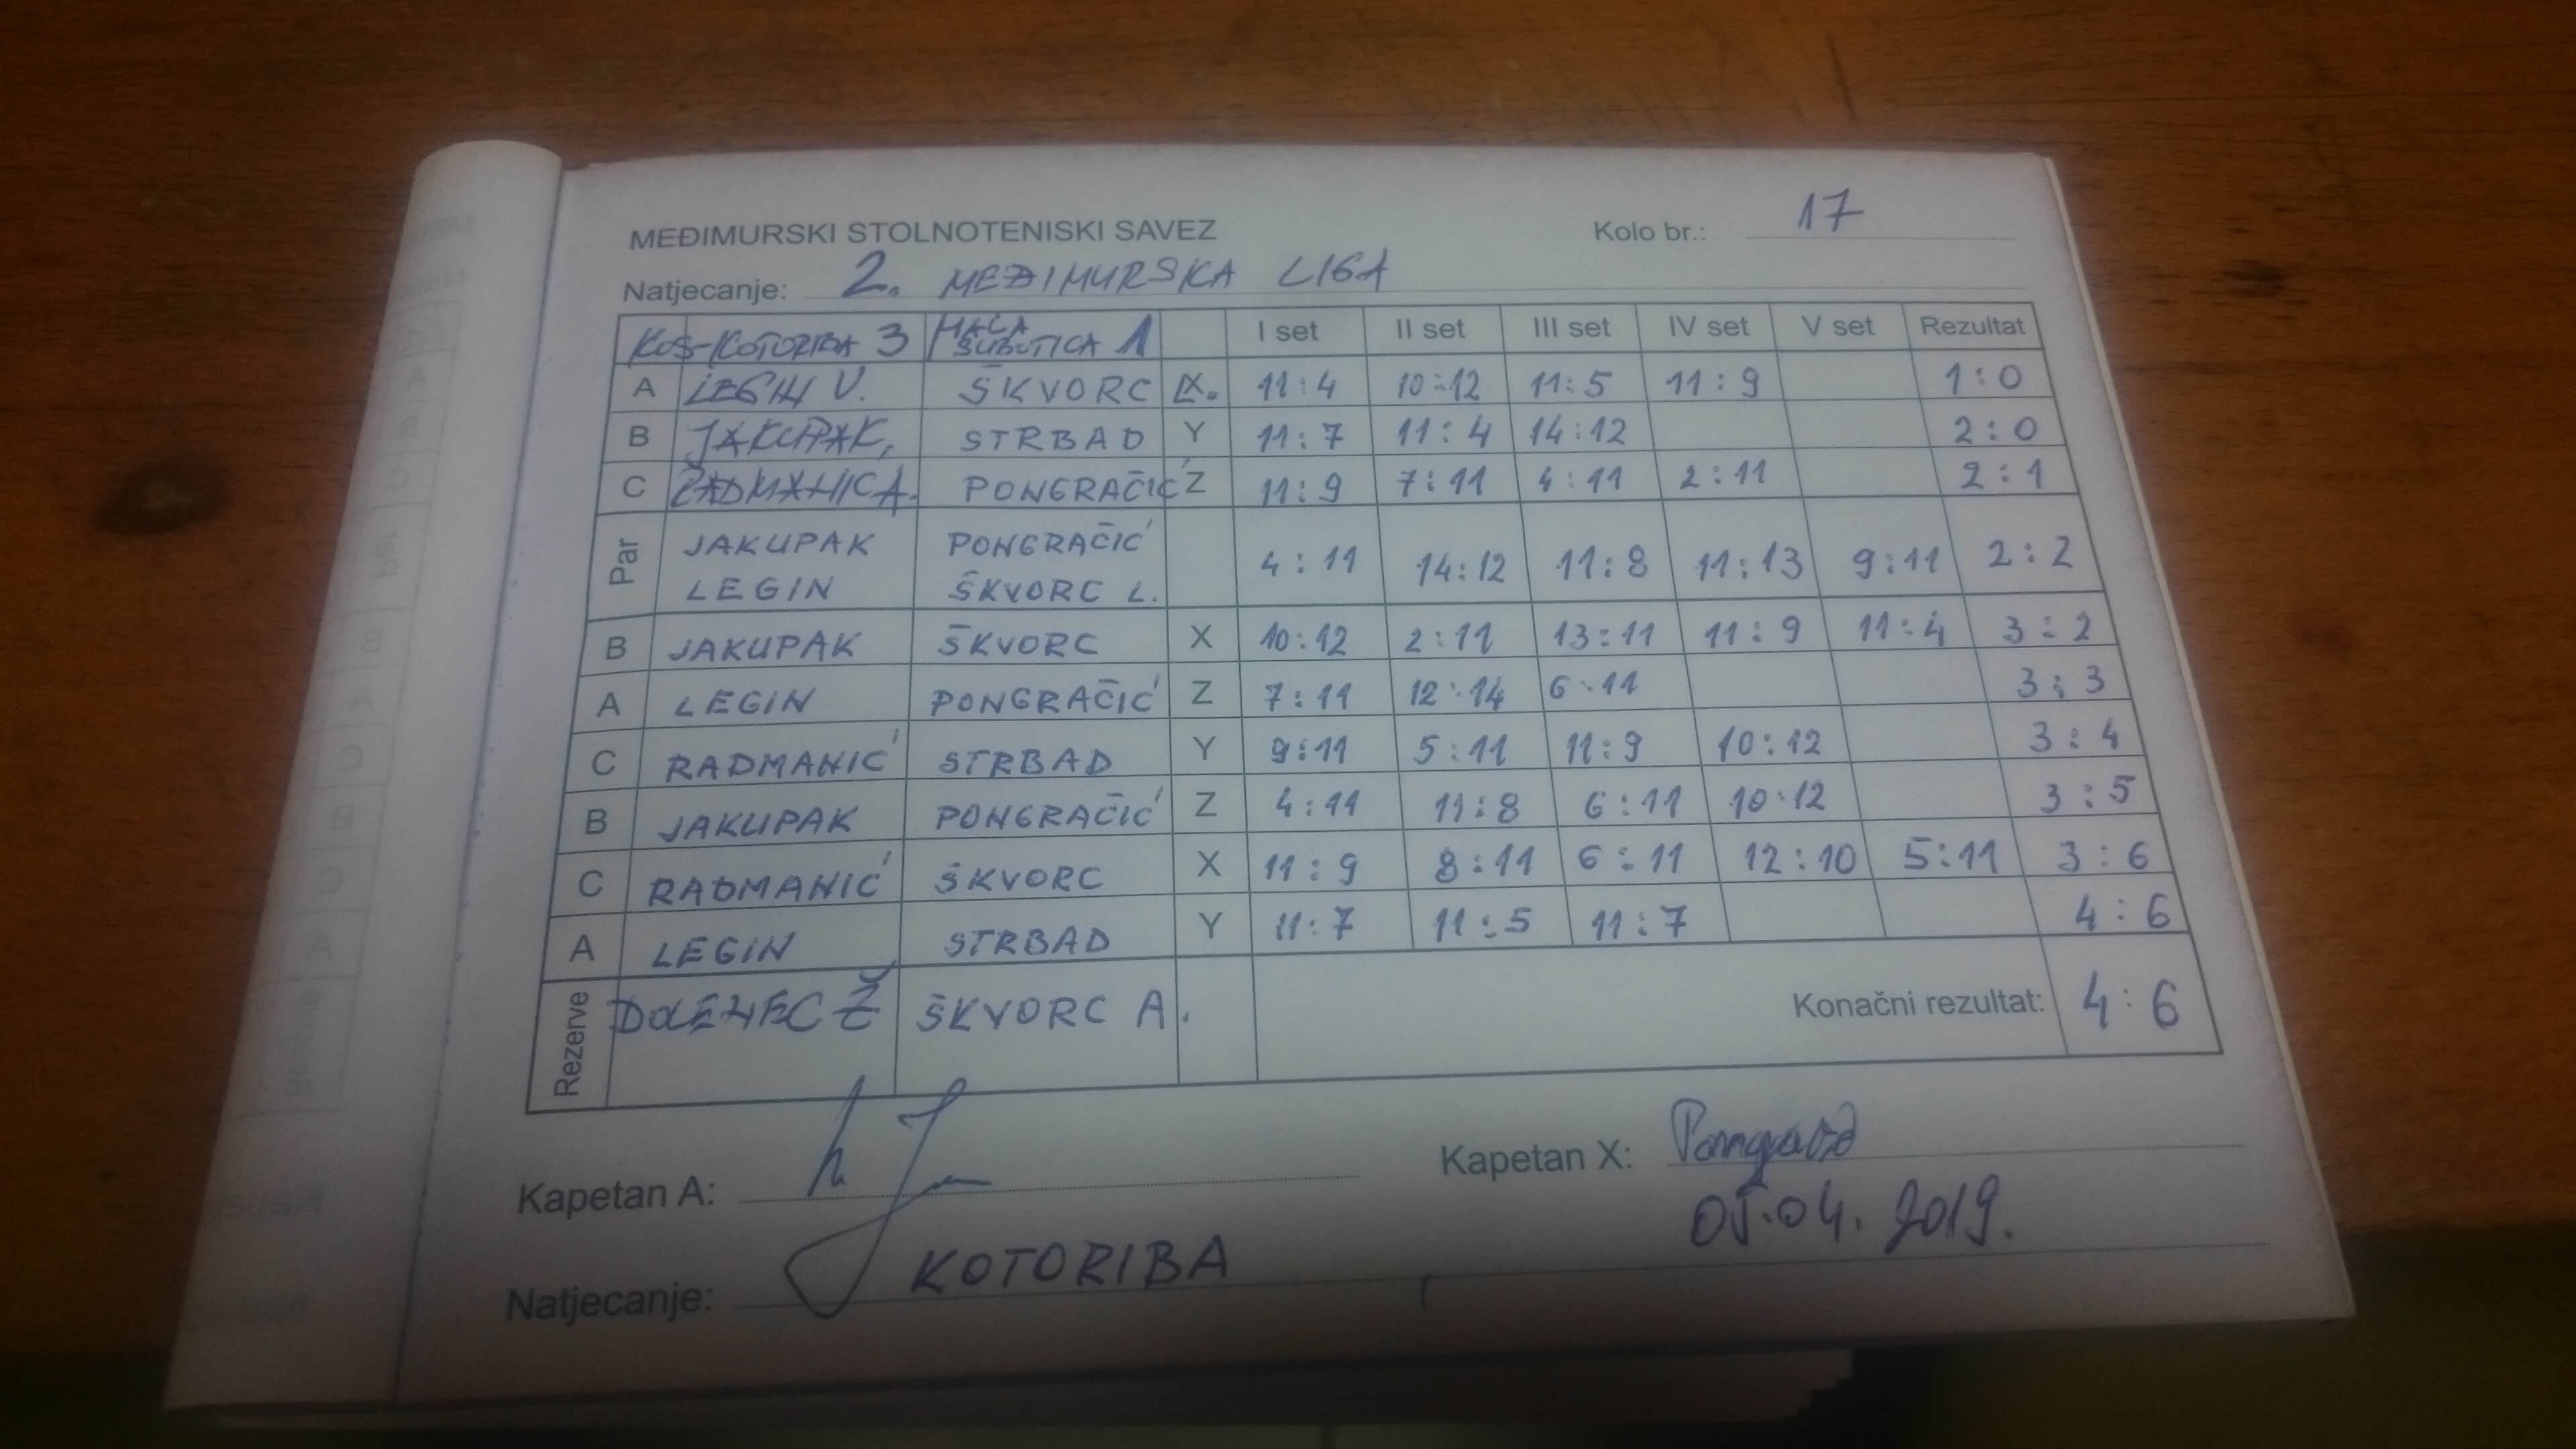 MEĐIMURSKI STOLNOTENISKI SAVEZ Kolo br.: 17
Natjecanje: 2. MEĐIMURSKA LIGA
KUS-KOTORIBA 3 MALA SUBOTICA 1 I set II set III set IV set V set Rezultat
A LEGIN V. ŠKVORC L. X 11:4 10:12 11:5 11:9 1:0
B JAKUPAK, STRBAD Y 11:7 11:4 14:12 2:0
C RADMANIĆ A. PONGRAČIĆ Z 11:9 7:11 4:11 2:11 2:1
Par JAKUPAK LEGIN PONGRAČIĆ ŠKVORC L. 4:11 14:12 11:8 11:13 9:11 2:2
B JAKUPAK ŠKVORC X 10:12 2:11 13:11 11:9 11:4 3:2
A LEGIN PONGRAČIĆ Z 7:11 12:14 6:11 3:3
C RADMANIĆ STRBAD Y 9:11 5:11 11:9 10:12 3:4
B JAKUPAK PONGRAČIĆ Z 4:11 11:8 6:11 10:12 3:5
C RADMANIĆ ŠKVORC X 11:9 8:11 6:11 12:10 5:11 3:6
A LEGIN STRBAD Y 11:7 11:5 11:7 4:6
Rezerve DOLENEC Ž ŠKVORC A. Konačni rezultat: 4:6
Kapetan A: Kapetan X:
05.04.2019.
Natjecanje: KOTORIBA